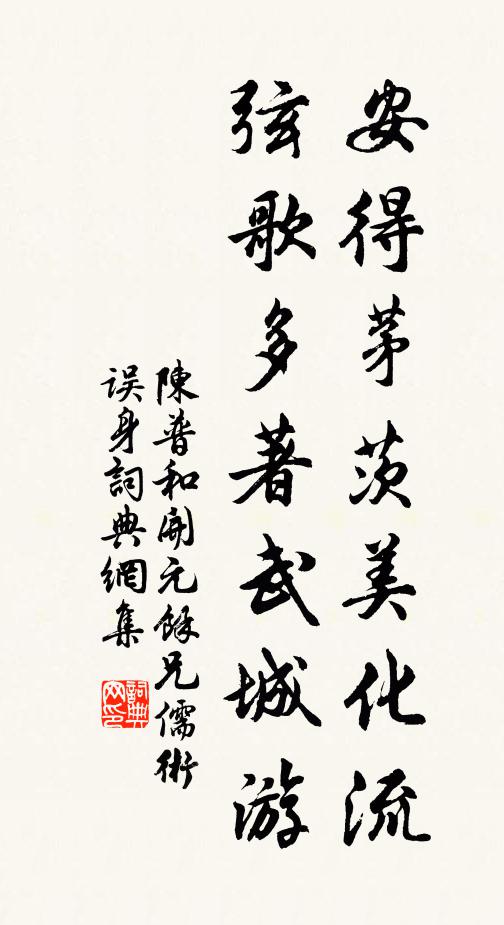 安得茅茨美化流
弦歌多著武城游
陳普和開元餘兄儒術
誤身詞典網集
詞典网印